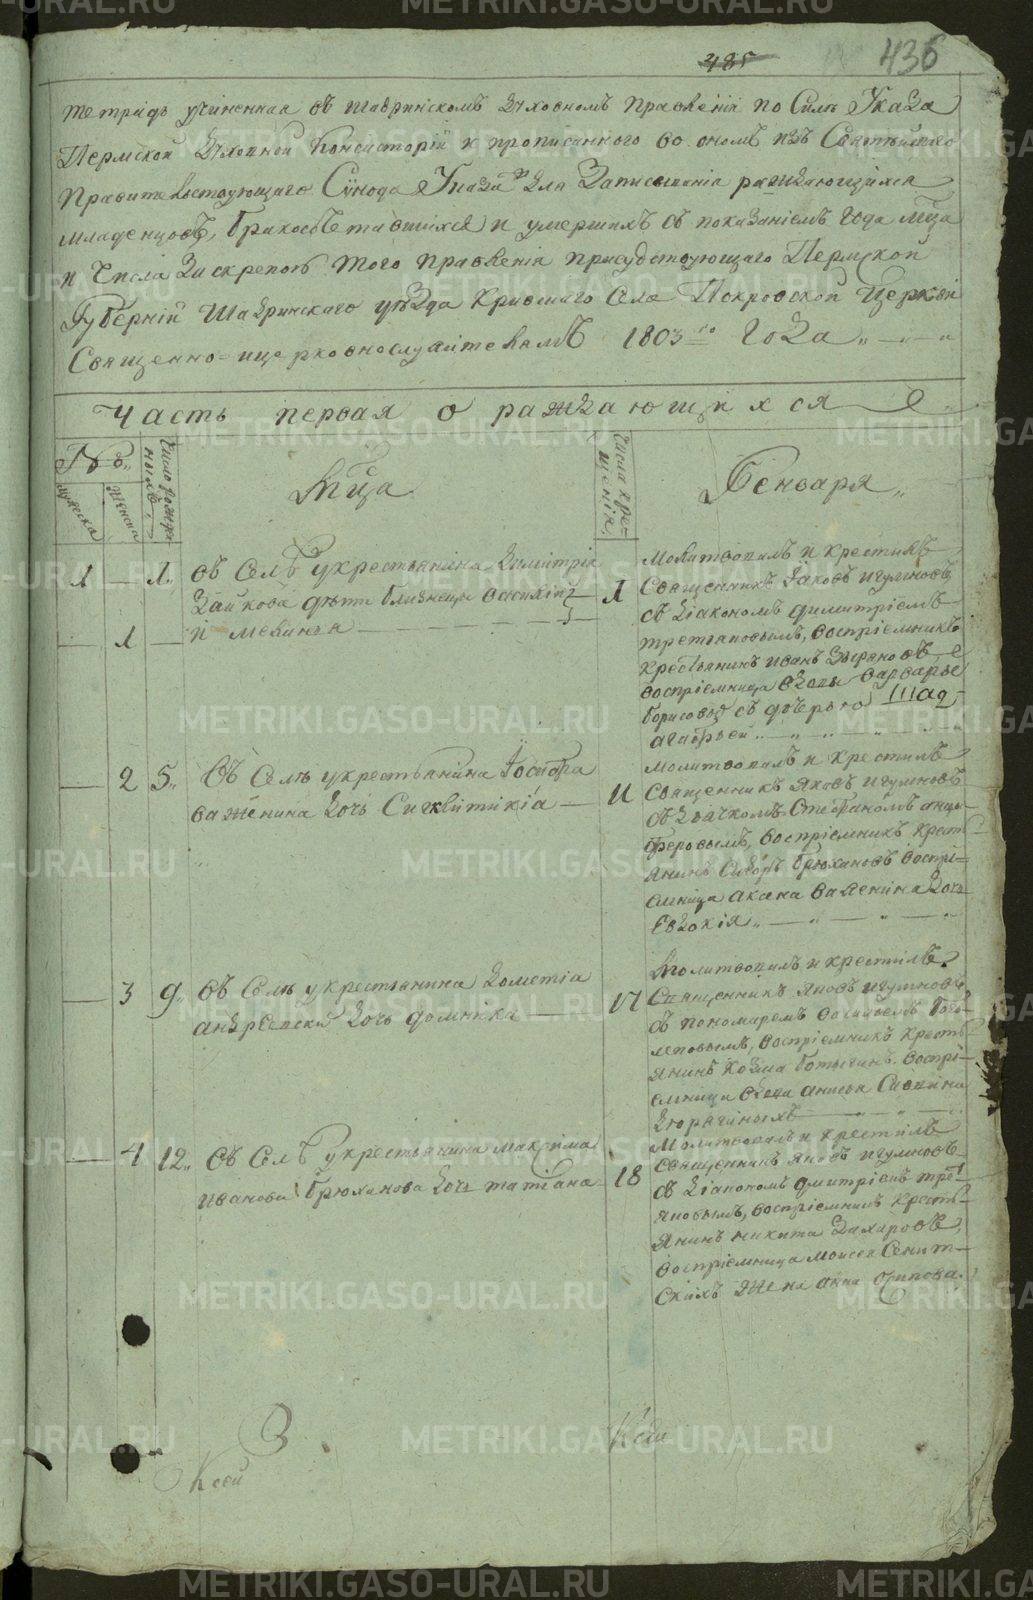 485
436
тетрадь учиненная въ шадринскомъ духовномъ правленіи по Силѣ Указа
Пермской духовной Консисторіи и прописанного во ономъ изъ Святѣйшаго
Правительствующаго Сѵнода Указа для Записыванія раждающихся
младенцовъ, бракосочетавшихся и умершихъ съ показаніемъ года мца
и Числа За скрепою того правленія присудствующаго Пермской
Губерніи Шадринскаго уѣзда Крившаго Села Покровской Церкви
Священно-и церковнослужителямъ 1803 го года
Часть первая о раждающихся
№
мужеска
женска
Число рожденныхъ
Мца
Числа крещенія
Генваря
1 — 1. Въ Селѣ у крестьянина Димитрія
Зайкова дѣти близнецы Василій
— 1 — и меланья
1
молитвовалъ и крестилъ
Священникъ Іаковъ игумновъ
съ діакономъ димитріемъ
третьяковымъ, воспріемникъ
крестьянинъ иванъ Зыряновъ
воспріемница вдовы варвары
борисовой съ дочерью
агафьей
— 2 5. Въ Селѣ у крестьянина
важенина дочь Сигклитикіа —
11
молитвовалъ и крестилъ
Священникъ Яковъ игумновъ
съ дьячкомъ Стефаномъ анци-
феровымъ, воспріемникъ крест-
янинъ Сидоръ брюхановъ воспрі-
емница важенина дочь
Евдокія
— 3 9. Въ Селѣ у крестьянина дометіа
андреевска дочь домника —
17
Молитвовалъ и крестилъ
Священникъ Яковъ игумновъ
съ пономаремъ васильемъ бого-
леповымъ, воспріемникъ кресть-
янинъ Козма воспрі-
емница вдова анисья
— 4 12. Въ Селѣ у крестьянина максима
иванова брюханова дочь татіана
18
Молитвовалъ и крестилъ
священникъ яковъ игумновъ
съ діакономъ дмитріевъ трет-
яковымъ, воспріемникъ кресть-
янинъ никита Захаровъ,
воспріемница моисея Сенит-
скихъ жена анна
З
Ксей
METRIKI.GASO-URAL.RU